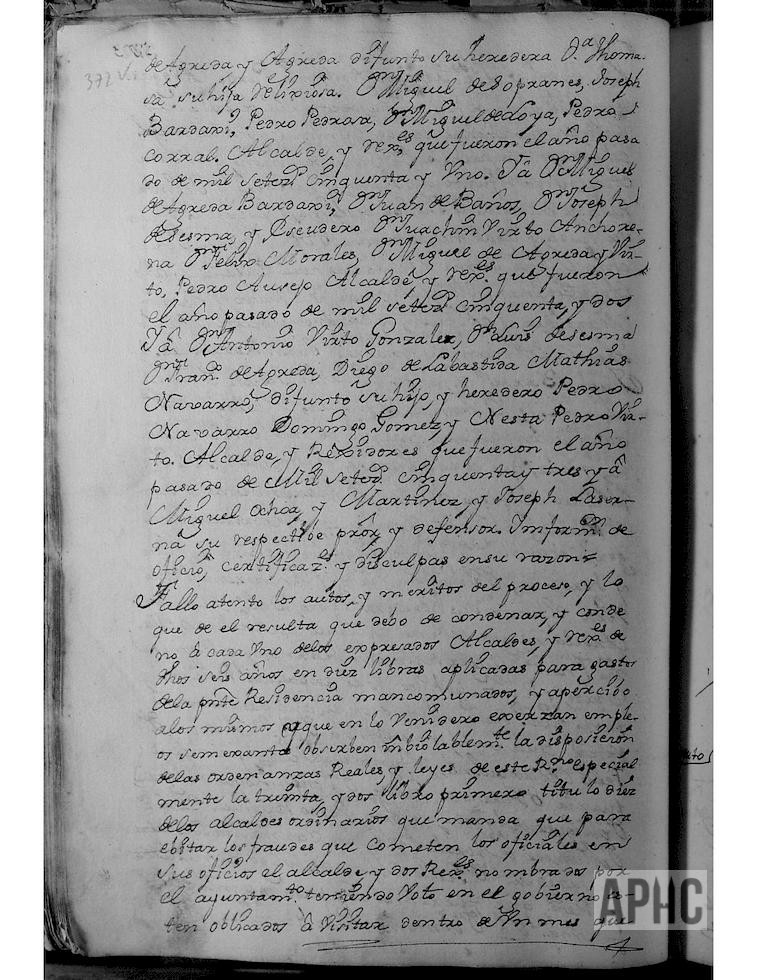 372 v.
de Agreda y Agreda difunto su heredera D.ª Thoma-
sa su hija Relixiosa. D.n Miguel de Sopranes, Joseph
Bardaxi, Pedro Pedrosa, D.n Miguel de Loya, Pedro
Corral. Alcalde, y Rex.es que fueron el año pasa
do de mil setez.s cinquenta y Vno. Ya D.n Miguel
de Agreda Bardaxi, D.n Juan de Baños, D.n Joseph
de sesma, y Escudero D.n Juachin Virto Anchore-
na D.n Felix Morales, D.n Miguel de Agreda y Vir-
to, Pedro Ausejo Alcalde, y Rex.es que fueron
el año pasado de mil setez.s cinquenta, y dos
Ya D.n Antonio Virto Gonzalez, D.n Luis de sesma
D.n Fran.co de Agreda, Diego de Labastida Mathias
Navarro, difunto su hijo, y heredero Pedro
Navarro Domingo Gomez, y Nesta Pedro Vir-
to. Alcalde, y Rexidores que fueron el año
pasado de Mil Setez.s cinquenta y tres y â
Miguel Ochoa, y Martinez y Joseph Laser-
na su respectibe prôr, y defensor. Inform.n de
oficio, certificaz.n y disculpas en su razon=
Fallo atento los autos, y meritos del proceso, y lo
que de el resulta que debo de condenar, y conde
no â cada Vno delos expresados Alcaldes, y Rex.es de
dhos seis años en diez libras aplicadas para gastos
dela pnte Residencia mancomunados, y apercibo
alos mismos que en lo Venidero exerzan emple-
os semexantes obserben inbiolablem.te la disposicion
delas ordenanzas Reales y leyes de este R.no especial
mente la treinta, y dos libro primero titulo diez
delos alcaldes ordinarios que manda que para
ebitar los fraudes que cometen los oficiales en
sus oficios el alcalde y dos Rex.es nombrados por
el ayuntam.to teniendo Voto en el gobierno es-
ten obligados â Visitar dentro de Vn mes que
APHC